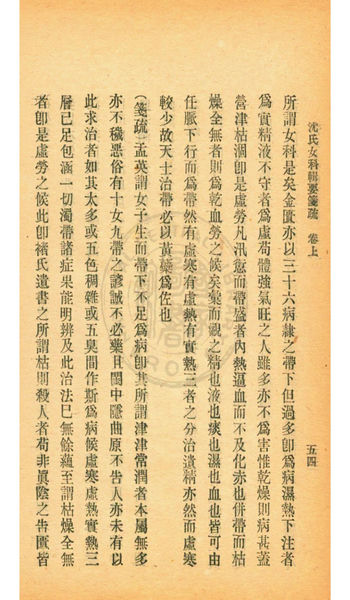 沈氏女科輯要箋疏 卷上
五四
所謂女科是矣金匱亦以三十六病隸之帶下但過多卽爲病濕熱下注者
爲實精液不守者爲虛苟體強氣旺之人雖多亦不爲害惟乾燥則病甚蓋
營津枯涸卽是虛勞凡汛愆而帶盛者內熱逼血而不及化赤也倂帶而枯
燥全無者則爲乾血勞之候矣彙而觀之精也液也痰也濕也血也皆可由
任脈下行而爲帶然有虛寒有虛熱有實熱三者之分治遺精亦然而虛寒
較少故天士治帶必以黃蘗爲佐也
(箋疏)孟英謂女子生而帶下不足爲病卽其所謂津津常潤者本屬無多
亦不穢惡俗有十女九帶之諺誠不必藥且閨中隱曲原不告人亦未有以
此求治者如其太多或五色稠雜或五臭間作斯爲病候虛寒虛熱實熱三
層已足包涵一切濁帶諸症果能明辨及此治法巳無餘蘊至謂枯燥全無
者卽是虛勞之候此卽褚氏遺書之所謂枯則殺人者苟非眞陰之告匱皆